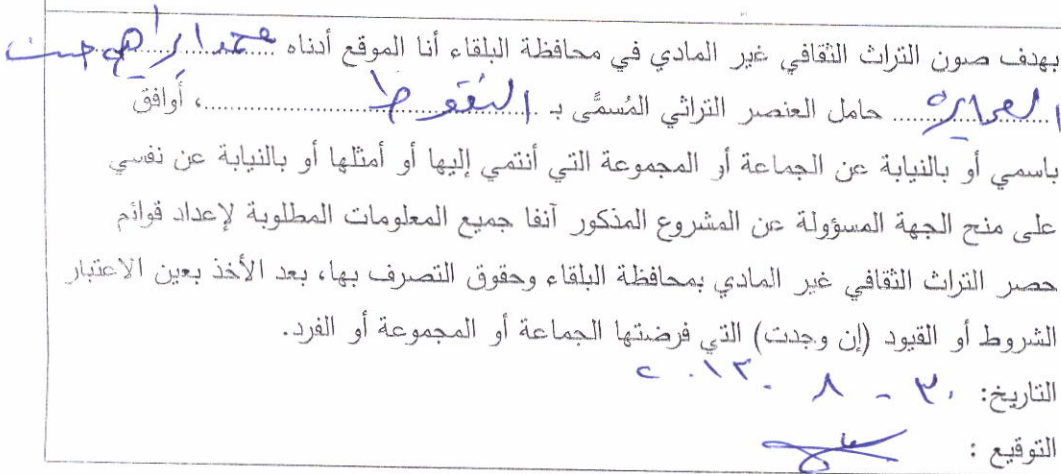 بهدف صون التراث الثقافي غير المادي في محافظة البلقاء أنا الموقع أدناه محمد ابراهيم
........... حامل العنصر التراثي المُسمَّى بـ النقوط ...........، أوافق
باسمي أو بالنيابة عن الجماعة أو المجموعة التي أنتمي إليها أو أمثلها أو بالنيابة عن نفسي
على منح الجهة المسؤولة عن المشروع المذكور آنفا جميع المعلومات المطلوبة لإعداد قوائم
حصر التراث الثقافي غير المادي بمحافظة البلقاء وحقوق التصرف بها، بعد الأخذ بعين الاعتبار
الشروط أو القيود (إن وجدت) التي فرضتها الجماعة أو المجموعة أو الفرد.
التاريخ: ٣٠ - ٨ - ٢٠١٢
التوقيع :